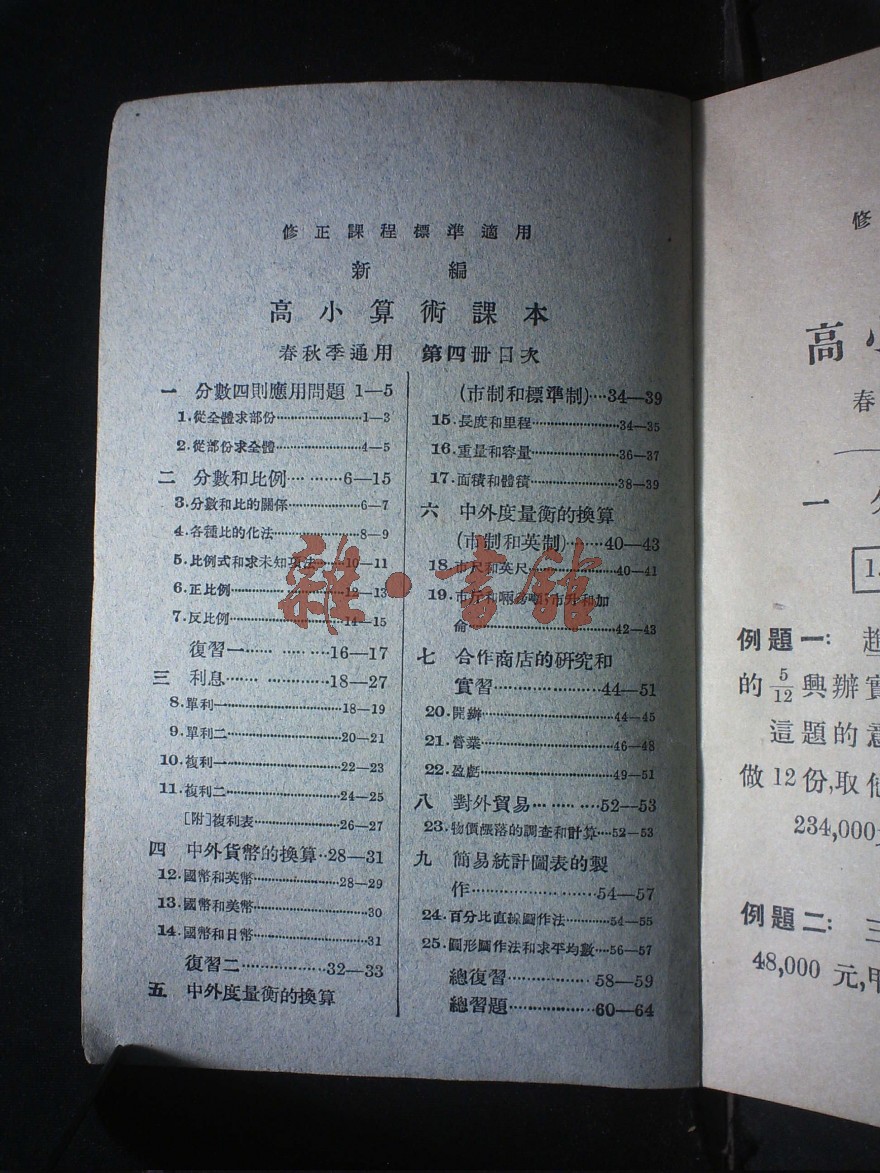 修正課程標準適用
新編
高小算術課本
春秋季通用 第四册目次
一 分數四則應用問題 1—5
1.從全體求部份…………1—3
2.從部份求全體…………4—5
二 分數和比例…………6—15
3.分數和比的關係…………6—7
4.各種比的化法…………8—9
5.比例式和求未知項法……10—11
6.正比例…………12—13
7.反比例…………14—15
復習一…………16—17
三 利息…………18—27
8.單利一…………18—19
9.單利二…………20—21
10.複利一…………22—23
11.複利二…………24—25
[附]複利表…………26—27
四 中外貨幣的換算··28—31
12.國幣和英幣…………28—29
13.國幣和美幣…………30
14.國幣和日幣…………31
復習二…………32—33
五 中外度量衡的換算
(市制和標準制)…34—39
15.長度和里程…………34—35
16.重量和容量…………36—37
17.面積和體積…………38—39
六 中外度量衡的換算
(市制和英制)……40—43
18.市尺和英尺…………40—41
19.市斤和兩;市升和加
侖…………42—43
七 合作商店的研究和
實習…………44—51
20.開辦…………44—45
21.營業…………46—48
22.盈虧…………49—51
八 對外貿易…………52—53
23.物價漲落的調查和計算…52—53
九 簡易統計圖表的製
作…………54—57
24.百分比直線圖作法………54—55
25.圓形圖作法和求平均數…56—57
總復習…………58—59
總習題…………60—64
雜·書館
修
高小
春
一
1.
例題一:
的 5/12 興辦實
這題的意
做12份,取他
234,000元
例題二: 三
48,000 元,甲